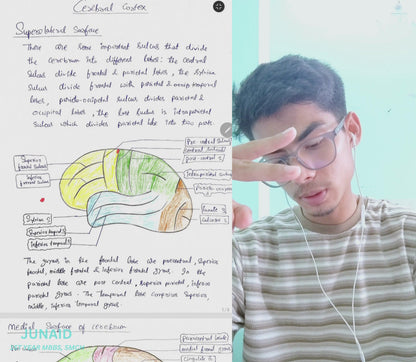 Cerebral Cortex
Superolateral Surface
There are some important Sulcus that divide
the Cerebrum into different lobes: the central
Sulcus divide frontal & parietal lobes, the Sylvian
Sulcus divide frontal with parietal &
lobes, parieto-occipital sulcus divides parietal &
occipital lobes, the last Sulcus is intraparietal
Sulcus which divides parietal lobe into two parts.
Pre central Sulcus
Central Sulcus
Post central S
Superior
frontal sulcus
Inferior
frontal sulcus
Intraparietal
Parieto
Lunate S
Calcarine S
Sylvian S
Superior temporal S
Inferior temporal S
The gyrus in the frontal lobe are precentral, Superior
frontal, middle frontal & inferior frontal gyrus. In the
parietal lobe are post central, superior parietal, inferior
parietal gyrus. The temporal lobe comprises Superior,
middle, inferior temporal gyrus.
1/2
Medial Surface of Cerebrum
JUNAID
MBBS, SMCH
Paracentral
medial frontal
Cingulate